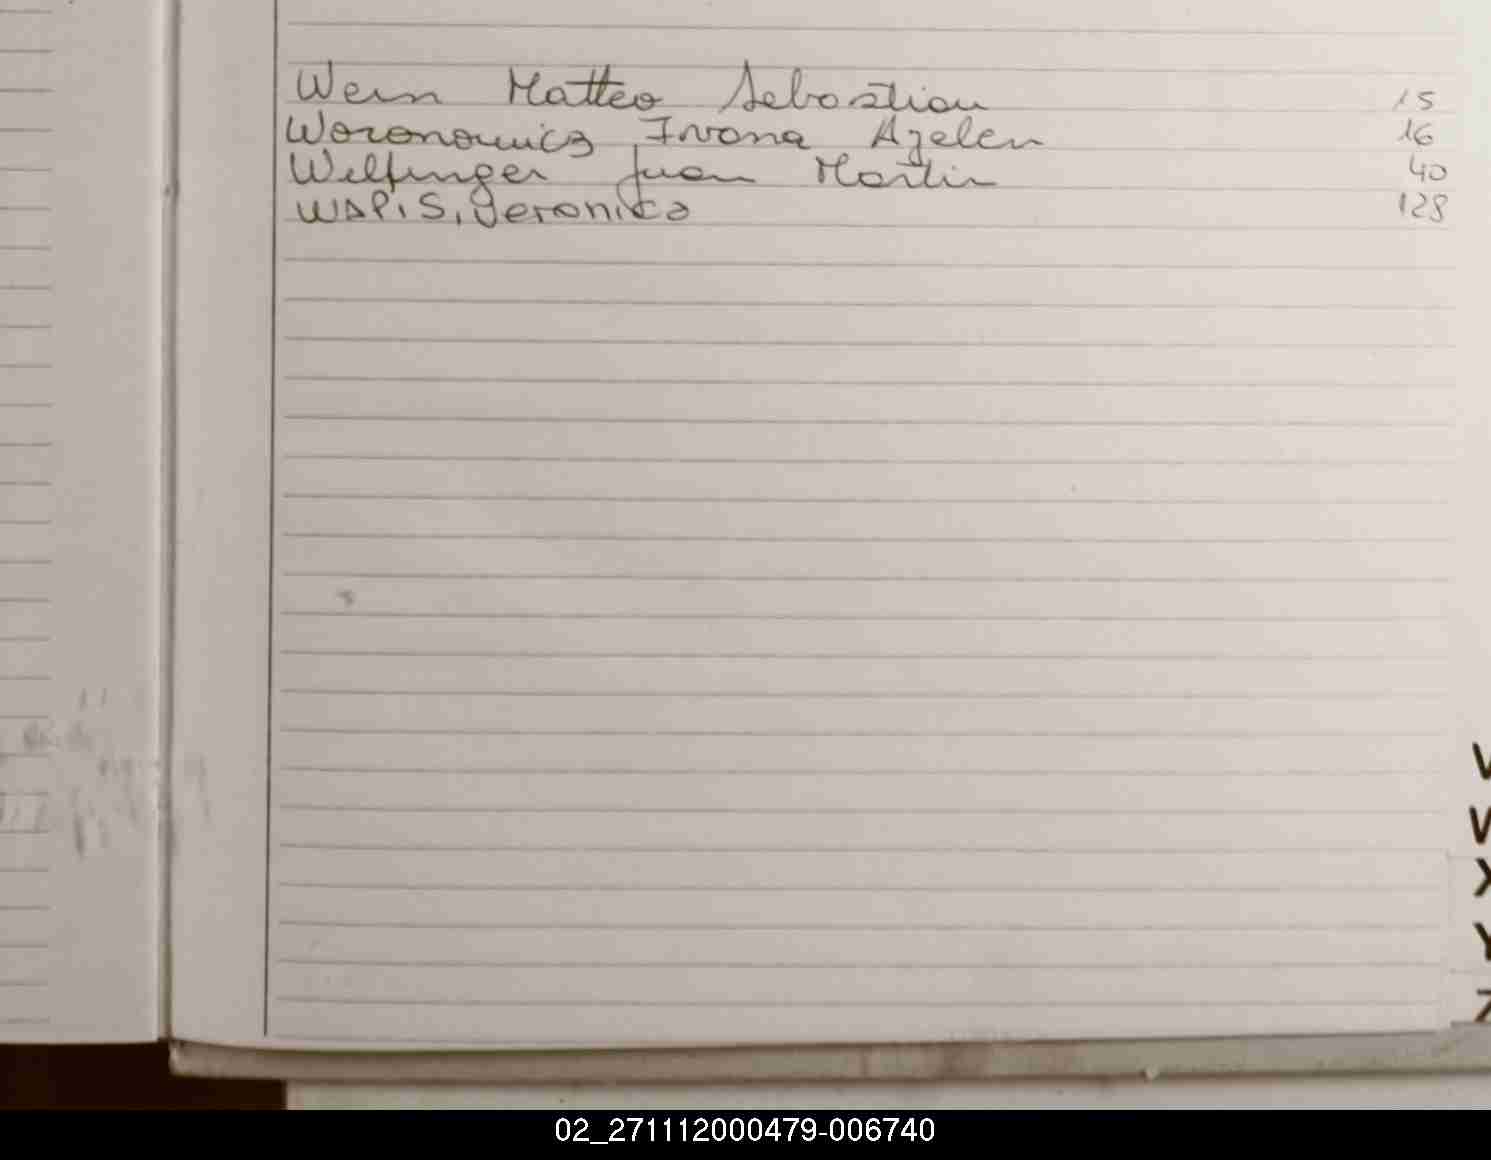 Wern Matteo Sebastian 15
Woronowicz Ivana Azelen 16
Welfinger Juan Martin 40
WAPIS, Veronica 128
V
W
X
Y
Z
02_271112000479-006740